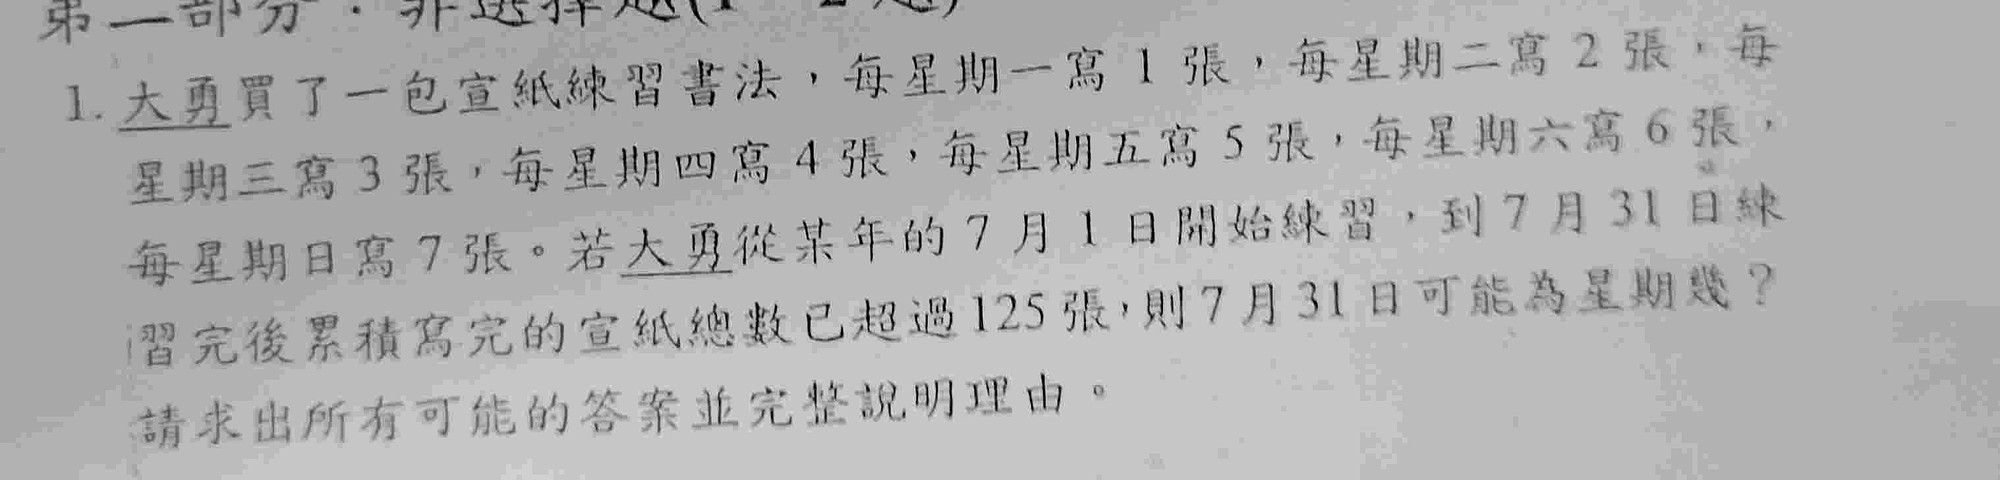 第二部分：非選擇題(1~2題)
1. 大勇買了一包宣紙練習書法，每星期一寫 1 張，每星期二寫 2 張，每
星期三寫 3 張，每星期四寫 4 張，每星期五寫 5 張，每星期六寫 6 張，
每星期日寫 7 張。若大勇從某年的 7 月 1 日開始練習，到 7 月 31 日練
習完後累積寫完的宣紙總數已超過 125 張，則 7 月 31 日可能為星期幾？
請求出所有可能的答案並完整說明理由。